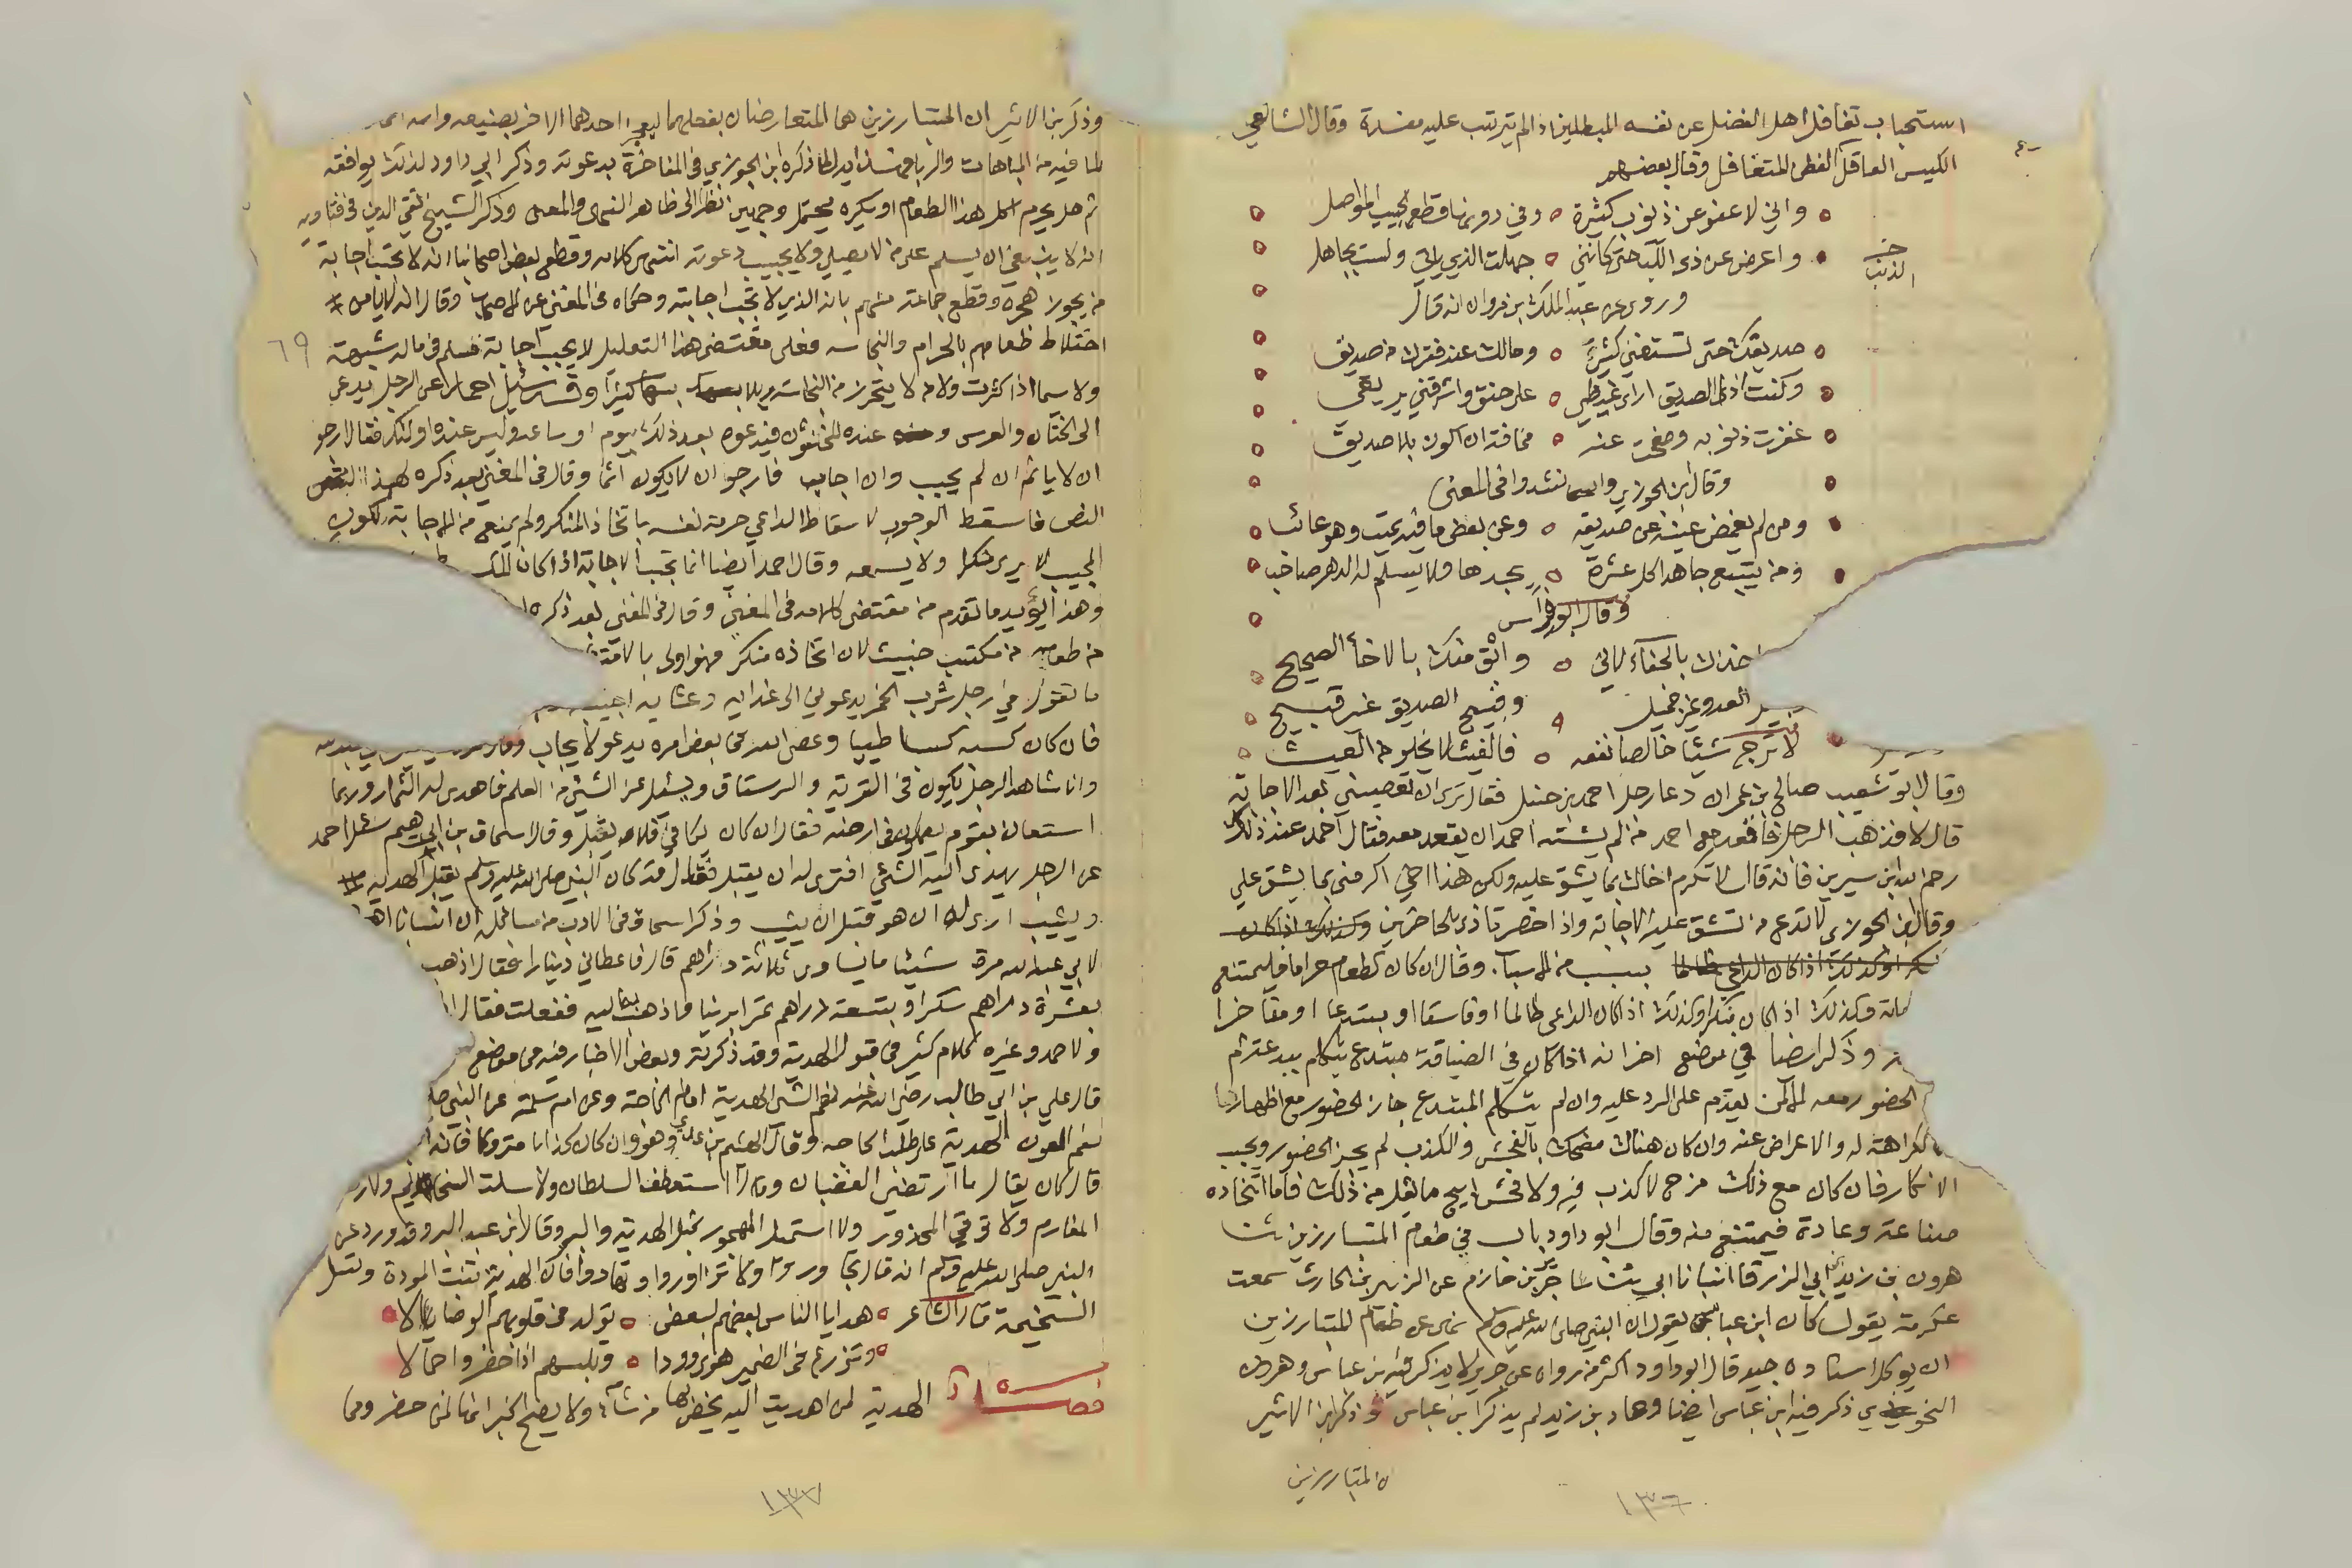 استحباب تغافل اهل الفضل عن نفسه المبطلين اذا لم يترتب عليه مفسدة وقال الشافعي
الكيس العاقل الفطن المتغافل وقال بعضهم
واني لاعفو عن ذنوب كثيرة وفي دونها قطع الحبيب المواصل
الذنب
واعرض عن ذي اللب حتى كانني جهلت الذي ياتي ولست بجاهل
وروى عن عبد الملك بن مروان انه قال
صديقك حتى تستغني كثير ومالك عند فقرك من صديق
وكنت اذا الصديق اراد غيظي على حنق واشرقني بريقي
غفرت ذنوبه وصفحت عنه مخافة ان اكون بلا صديق
وقال ابن الجوزي وانشدوا في المعنى
ومن لم يغمض عينه عن صديقه وعن بعض ما فيه يمت وهو عاتب
ومن يتتبع جاهدا كل عثرة يجدها ولا يسلم له الدهر صاحب
وقال ابو فراس
بالجفاء لاني واثق منك بالاخاء الصحيح
العدو غير جميل وقبيح الصديق غير قبيح
لا ترج شيئا خالصا نفعه فالغيث لا يخلو من العيث
وقال ابو شعيب صالح بن عمران دعا رجل احمد بن حنبل فقال ترى ان تعصيني بعد الاجابة
قال لا فذهب الرجل فاقعد مع احمد من لم يشته احمد ان يقعد معه فقال احمد عند ذلك
رحم الله ابن سيرين فانه قال لا تكرم اخاك بما يشق عليه ولكن هذا اخي اكرمني بما يشق علي
وقال ابن الجوزي لا تدع من تشق عليه الاجابة واذا حضر تاذى بالحاضرين
بسبب من الاسباب وقال ان كان الطعام حراما فليمتنع
وكذلك اذا كان منكرا وكذلك اذا كان الداعي ظالما او فاسقا او مبتدعا او مفاخرا
وذكر ايضا في موضع اخر انه اذا كان في الضيافة مبتدع يتكلم ببدعته لم
الحضور معه الا لمن يقدم على الرد عليه وان لم يتكلم المبتدع جاز الحضور مع اظهار
الكراهة له والاعراض عنه وان كان هناك مضحك بالفحش والكذب لم يجز الحضور ويجب
الانكار فان كان مع ذلك مزح لا كذب فيه ولا فحش ابيح ما يقل من ذلك فاما اتخاذه
صناعة وعادة فيمتنع منه وقال ابو داود باب في طعام المتباريين ثنا
هرون بن زيد بن ابي الزرقا انبانا ابي ثنا جرير بن حازم عن الزبير بن الحارث سمعت
عكرمة يقول كان ابن عباس يقول ان النبي صلى الله عليه وسلم نهى عن طعام المتباريين
ان يوكل اسناده جيد قال ابو داود اكثر من رواه عن جرير لا يذكر فيه ابن عباس وهرون
النحوي ذكر فيه ابن عباس ايضا وحماد بن زيد لم يذكر ابن عباس وذكر ابن الاثير
ان المتباريين
١٣٦
وذكر بن الاثير ان المتباريين هما المتعارضان بفعلهما ليعجز احدهما الاخر بصنيعه وانما
لما فيه من المباهات والريا ذكره ابن الجوزي في المفاخرة بدعوته وذكر ابي داود لذلك يوافقه
ثم هل يحرم اكل هذا الطعام او يكره يحتمل وجهين نظرا الى ظاهر النهي والمعنى وذكر الشيخ تقي الدين في فتاويه
انه لا ينبغي ان يسلم على من لا يصلي ولا يجيب دعوته انتهى كلامه وقطع بعض اصحابنا انه لا تجب اجابة
من يجوز هجره وقطع جماعة منهم بانه الذي لا تجب اجابته وحكاه في المغني عن الاصحاب وقال انه لا يامن
٦٩
اختلاط طعامهم بالحرام والنجاسة فعلى مقتضى هذا التعليل لا يجب اجابة مسلم في ماله شبهة
ولا سيما اذا كثرت ولا من لا يتحرز من النجاسة ويلابسها كثيرا وقد سئل احمد عن الرجل يدعى
الى الختان والعرس وعنده المخنثون فيدعوه بعد ذلك بيوم او ساعة وليس عنده اولئك فقال ارجو
ان لا ياثم ان لم يجب وان اجاب فارجو ان لا يكون اثما وقال في المغني بعد ذكره لهذا
النص فاسقط الوجوب لاسقاط الداعي حرمة نفسه باتخاذ المنكر ولم يمنع من الاجابة لكون
المجيب لا يرى منكرا ولا يسمعه وقال احمد ايضا انما تجب الاجابة اذا كان المكسب
وهذا يؤيد ما تقدم من مقتضى كلامه في المغني وقال في المغني بعد ذكره
من طعامه من مكتسب خبيث لان اتخاذه منكر فهو اولى بالامتناع
ما تقول في رجل شرب الخمر يدعوني الى غدايه وعشايه اجيبه
فان كان كسبه كسبا طيبا وعصى الله في بعض امره يدعو لا يجاب
وانا شاهد الرجل يكون في القرية والرستاق ويسئل عن الشيء من العلم فاهدى له الثمار وربما
استعان بقوم يعملون في ارضه فقال ان كان يكافي والا فلا يقبل وقال اسحاق بن ابراهيم سئل احمد
عن الرجل يهدى اليه الشي افترى له ان يقبل فقال قد كان النبي صلى الله عليه وسلم يقبل الهدية
ويثيب ارى له ان هو قبل ان يثيب وذكر اسحاق في الادب من مسائله ان انسانا
لابي عبد الله مرة شيئا ما يساوي ثلاثة دراهم قال فاعطاني دينارا فقال اذهب
بعشرة دراهم سكرا وبتسعة دراهم تمرا برنيا واذهب به اليه ففعلت فقال
ولاحمد وغيره كلام كثير في قبول الهدية وقد ذكرته وبعض الاخبار فيه في موضع
قال علي بن ابي طالب رضي الله عنه نعم الشي الهدية امام الحاجة وعن ام سلمة عن النبي
نعم العون الهدية على طلب الحاجة وقال الهيثم بن عدي وهو وان كان كذابا متروكا فانه
قال كان يقال ما ارتضي الغضبان ولا استعطف السلطان ولا سلت السخايم ولا
المغارم ولا توقي المحذور ولا استميل المهجور بمثل الهدية والبر وقال ابن عبد البر وقد ورد عن
النبي صلى الله عليه وسلم انه قال تهادوا فان الهدية تثبت المودة وتسل
السخيمة قال الشاعر هدايا الناس بعضهم لبعض تولد في قلوبهم الوصالا
وتزرع في الضمير هوى وودا وتلبسهم اذا حضروا جمالا
فصل الهدية لمن اهديت اليه يخص بها من شاء ولا يصح الخبر انها لمن حضر
١٣٧